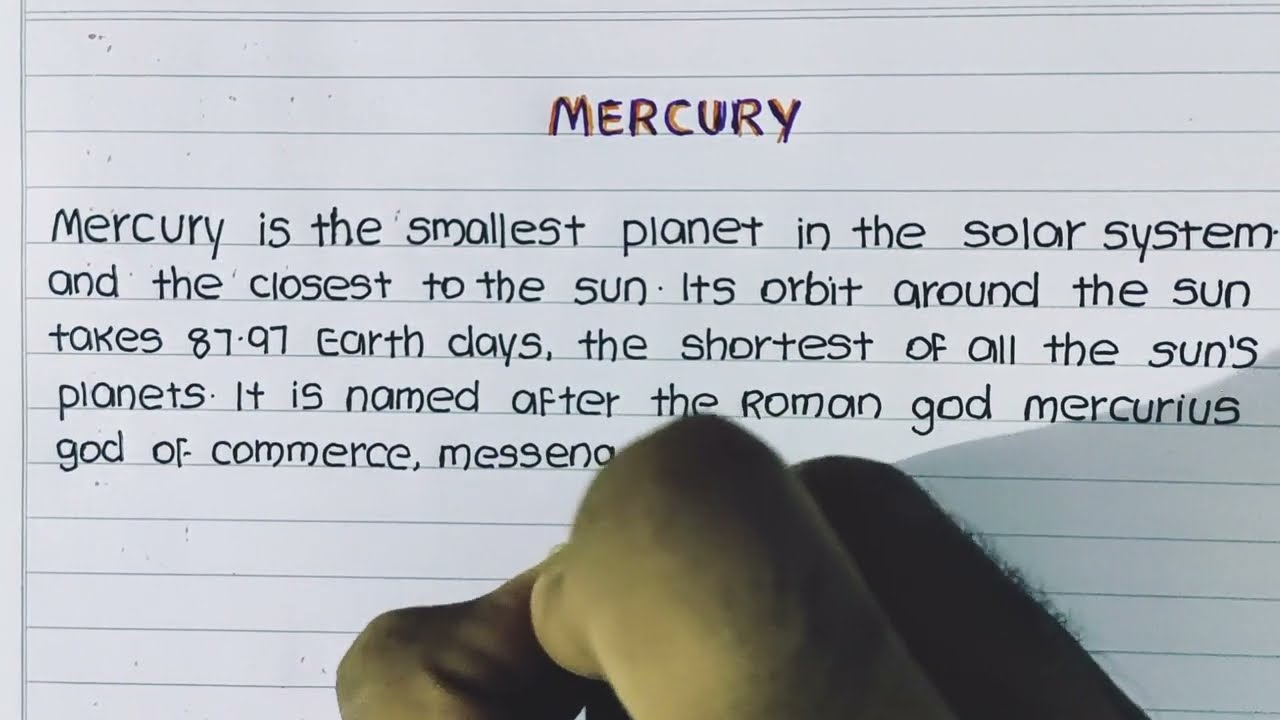 MERCURY
Mercury is the smallest planet in the solar system.
and the closest to the sun. Its orbit around the sun
takes 87.97 Earth days, the shortest of all the sun's
planets. It is named after the Roman god mercurius
god of commerce,